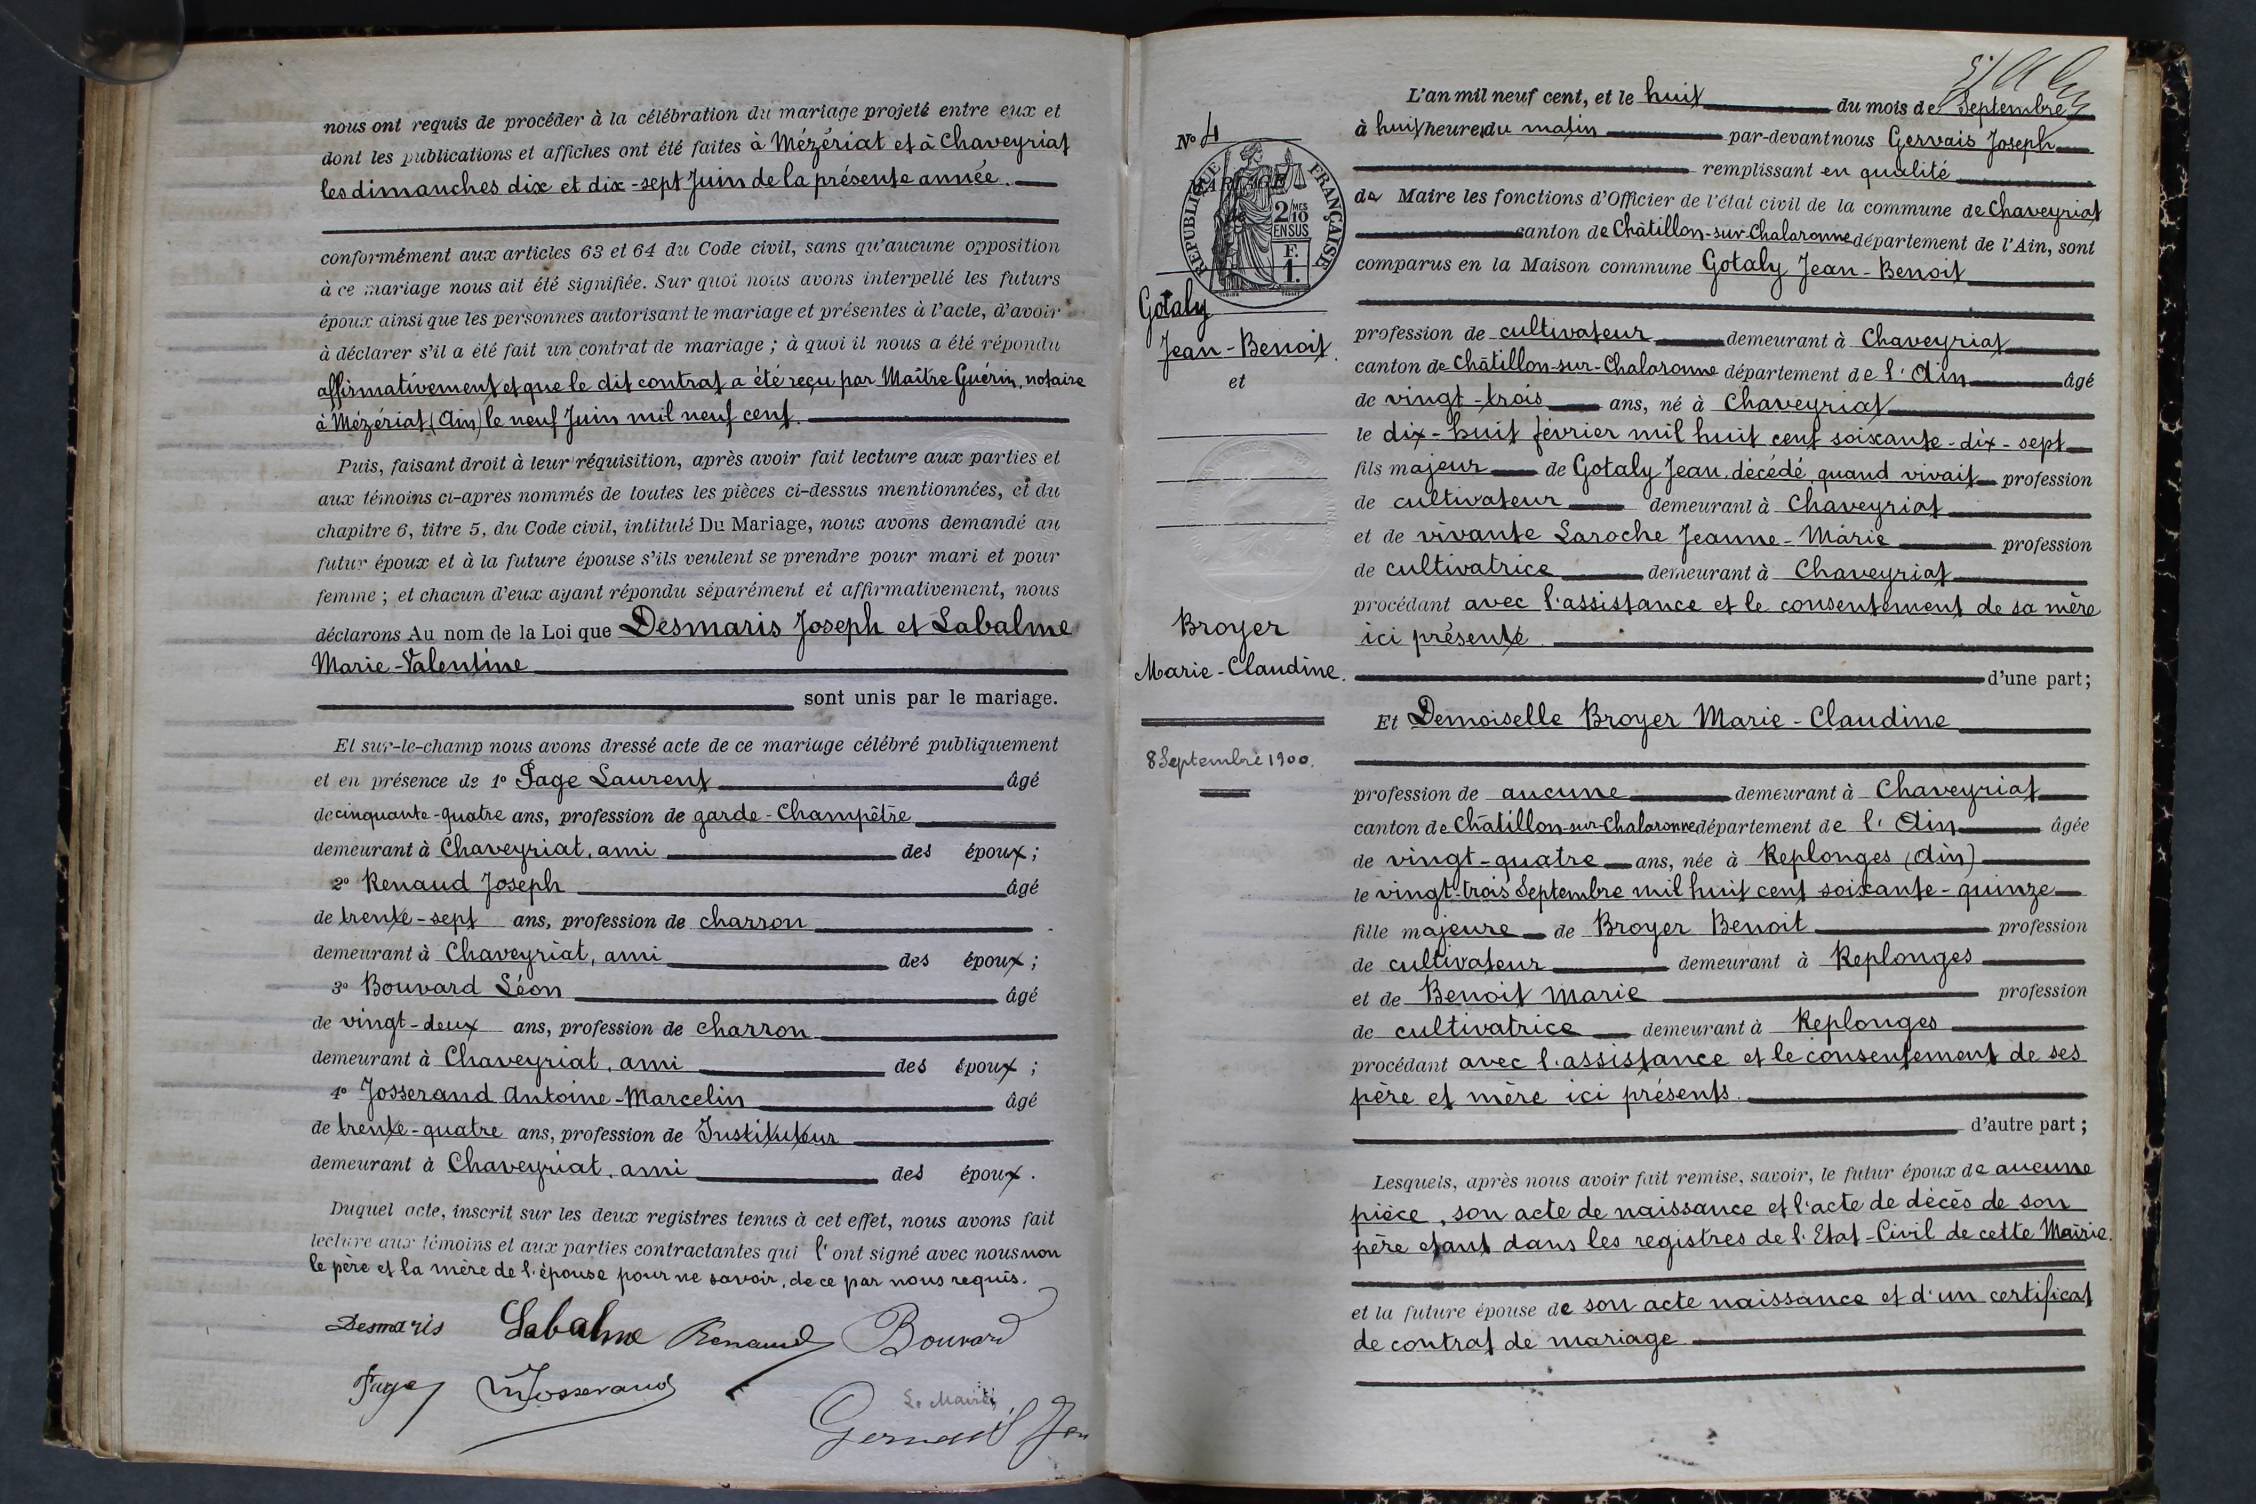 nous ont requis de procéder à la célébration du mariage projeté entre eux et
dont les publications et affiches ont été faites à Mézériat et à Chaveyriat
les dimanches dix et dix-sept Juin de la présente année.
conformément aux articles 63 et 64 du Code civil, sans qu'aucune opposition
à ce mariage nous ait été signifiée. Sur quoi nous avons interpellé les futurs
époux ainsi que les personnes autorisant le mariage et présentes à l'acte, d'avoir
à déclarer s'il a été fait un contrat de mariage ; à quoi il nous a été répondu
affirmativement et que le dit contrat a été reçu par Maître Guérin, notaire
à Mézériat (Ain) le neuf Juin mil neuf cent.
Puis, faisant droit à leur réquisition, après avoir fait lecture aux parties et
aux témoins ci-après nommés de toutes les pièces ci-dessus mentionnées, et du
chapitre 6, titre 5, du Code civil, intitulé Du Mariage, nous avons demandé au
futur époux et à la future épouse s'ils veulent se prendre pour mari et pour
femme ; et chacun d'eux ayant répondu séparément et affirmativement, nous
déclarons Au nom de la Loi que Desmaris Joseph et Labalme
Marie-Valentine
sont unis par le mariage.
Et sur-le-champ nous avons dressé acte de ce mariage célébré publiquement
et en présence de 1° Page Laurent âgé
de cinquante-quatre ans, profession de garde-Champêtre
demeurant à Chaveyriat, ami des époux ;
2° Renaud Joseph âgé
de trente-sept ans, profession de charron
demeurant à Chaveyriat, ami des époux ;
3° Bouvard Léon âgé
de vingt-deux ans, profession de charron
demeurant à Chaveyriat, ami des époux ;
4° Josserand Antoine-Marcelin âgé
de trente-quatre ans, profession de Instituteur
demeurant à Chaveyriat, ami des époux.
Duquel acte, inscrit sur les deux registres tenus à cet effet, nous avons fait
lecture aux témoins et aux parties contractantes qui l'ont signé avec nous non
le père et la mère de l'épouse pour ne savoir, de ce par nous requis.
Desmaris Labalme Renaud Bouvard
Page Josserand
Le Maire,
Gervais
N° 4
MARIAGE
de
RÉPUBLIQUE FRANÇAISE
2/10 MES
EN SUS
F.
1.
Gotaly
Jean-Benoit.
et
Broyer
Marie-Claudine.
8 Septembre 1900.
L'an mil neuf cent, et le huit du mois de Septembre
à huit heures du matin par-devant nous Gervais Joseph
remplissant en qualité
de Maire les fonctions d'Officier de l'état civil de la commune de Chaveyriat
canton de Châtillon-sur-Chalaronne département de l'Ain, sont
comparus en la Maison commune Gotaly Jean-Benoit
profession de cultivateur demeurant à Chaveyriat
canton de Châtillon-sur-Chalaronne département de l'Ain âgé
de vingt-trois ans, né à Chaveyriat
le dix-huit février mil huit cent soixante-dix-sept
fils majeur de Gotaly Jean, décédé, quand vivait profession
de cultivateur demeurant à Chaveyriat
et de vivante Laroche Jeanne-Marie profession
de cultivatrice demeurant à Chaveyriat
procédant avec l'assistance et le consentement de sa mère
ici présente.
d'une part;
Et Demoiselle Broyer Marie-Claudine
profession de aucune demeurant à Chaveyriat
canton de Châtillon-sur-Chalaronne département de l'Ain âgée
de vingt-quatre ans, née à Replonges (Ain)
le vingt-trois Septembre mil huit cent soixante-quinze
fille majeure de Broyer Benoit profession
de cultivateur demeurant à Replonges
et de Benoit Marie profession
de cultivatrice demeurant à Replonges
procédant avec l'assistance et le consentement de ses
père et mère ici présents.
d'autre part ;
Lesquels, après nous avoir fait remise, savoir, le futur époux de aucune
pièce, son acte de naissance et l'acte de décès de son
père étant dans les registres de l'Etat-Civil de cette Mairie.
et la future épouse de son acte naissance et d'un certificat
de contrat de mariage